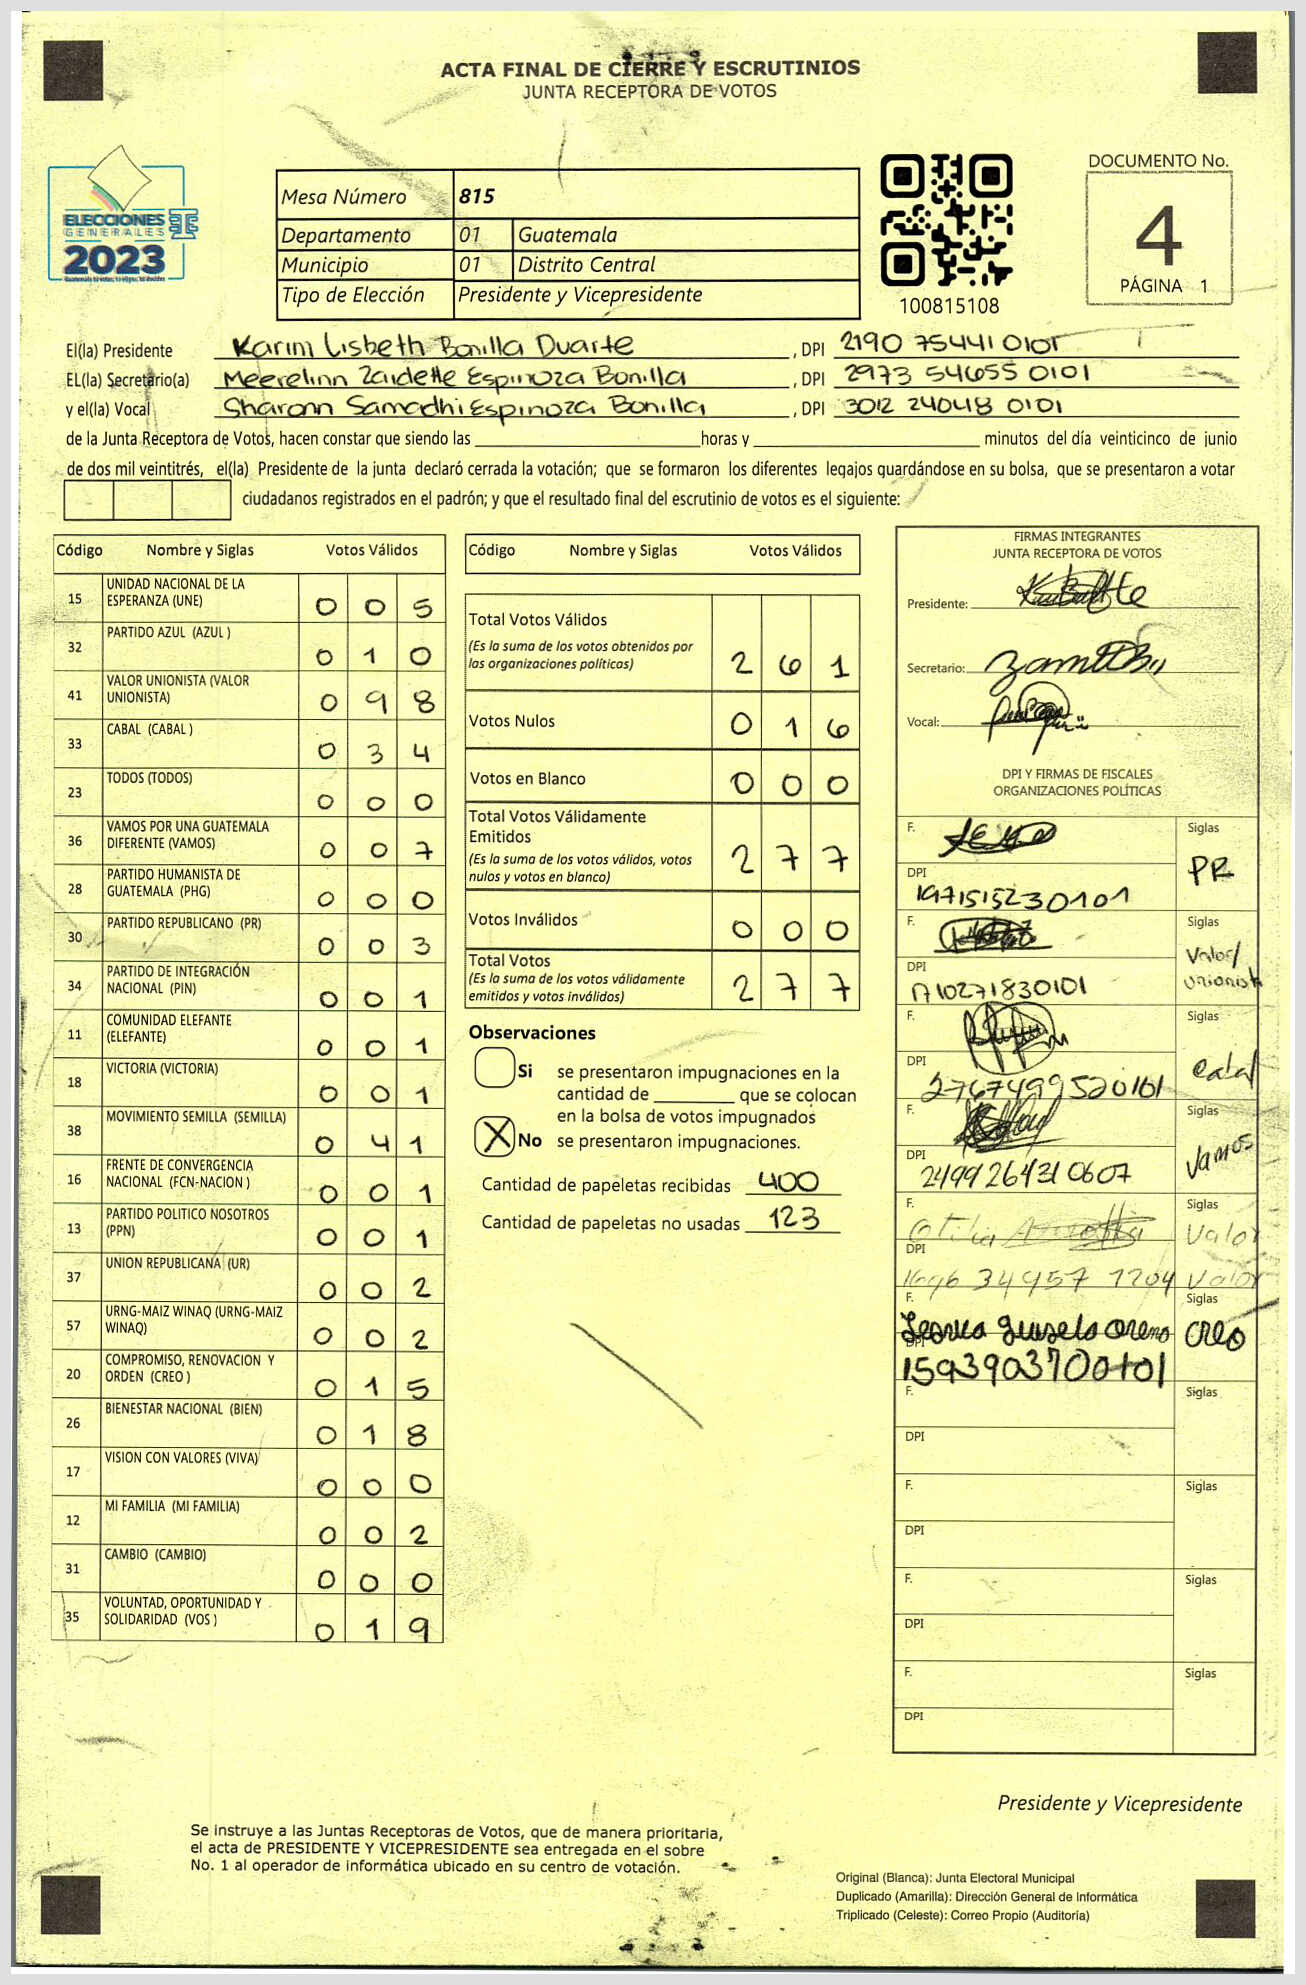 ACTA FINAL DE CIERRE Y ESCRUTINIOS
JUNTA RECEPTORA DE VOTOS
ELECCIONES
GENERALES
2023
Mesa Número 815
Departamento 01 Guatemala
Municipio 01 Distrito Central
Tipo de Elección Presidente y Vicepresidente
100815108
DOCUMENTO No.
4
PÁGINA 1
El(la) Presidente Karim Lisbeth Bonilla Duarte, DPI 2190 75441 0101
EL(la) Secretario(a) Meerelinn Zaidette Espinoza Bonilla, DPI 2973 54655 0101
y el(la) Vocal Sharonn Samadhi Espinoza Bonilla, DPI 3012 24048 0101
de la Junta Receptora de Votos, hacen constar que siendo las ____ horas y ____ minutos del día veinticinco de junio
de dos mil veintitrés, el(la) Presidente de la junta declaró cerrada la votación; que se formaron los diferentes legajos guardándose en su bolsa, que se presentaron a votar
ciudadanos registrados en el padrón; y que el resultado final del escrutinio de votos es el siguiente:
Código Nombre y Siglas Votos Válidos
15 UNIDAD NACIONAL DE LA ESPERANZA (UNE) 0 0 5
32 PARTIDO AZUL (AZUL ) 0 1 0
41 VALOR UNIONISTA (VALOR UNIONISTA) 0 9 8
33 CABAL (CABAL ) 0 3 4
23 TODOS (TODOS) 0 0 0
36 VAMOS POR UNA GUATEMALA DIFERENTE (VAMOS) 0 0 7
28 PARTIDO HUMANISTA DE GUATEMALA (PHG) 0 0 0
30 PARTIDO REPUBLICANO (PR) 0 0 3
34 PARTIDO DE INTEGRACIÓN NACIONAL (PIN) 0 0 1
11 COMUNIDAD ELEFANTE (ELEFANTE) 0 0 1
18 VICTORIA (VICTORIA) 0 0 1
38 MOVIMIENTO SEMILLA (SEMILLA) 0 4 1
16 FRENTE DE CONVERGENCIA NACIONAL (FCN-NACION ) 0 0 1
13 PARTIDO POLITICO NOSOTROS (PPN) 0 0 1
37 UNION REPUBLICANA (UR) 0 0 2
57 URNG-MAIZ WINAQ (URNG-MAIZ WINAQ) 0 0 2
20 COMPROMISO, RENOVACION Y ORDEN (CREO ) 0 1 5
26 BIENESTAR NACIONAL (BIEN) 0 1 8
17 VISION CON VALORES (VIVA) 0 0 0
12 MI FAMILIA (MI FAMILIA) 0 0 2
31 CAMBIO (CAMBIO) 0 0 0
35 VOLUNTAD, OPORTUNIDAD Y SOLIDARIDAD (VOS ) 0 1 9
Código Nombre y Siglas Votos Válidos
Total Votos Válidos 2 6 1
(Es la suma de los votos obtenidos por
las organizaciones políticas)
Votos Nulos 0 1 6
Votos en Blanco 0 0 0
Total Votos Válidamente
Emitidos 2 7 7
(Es la suma de los votos válidos, votos
nulos y votos en blanco)
Votos Inválidos 0 0 0
Total Votos 2 7 7
(Es la suma de los votos válidamente
emitidos y votos inválidos)
Observaciones
Si se presentaron impugnaciones en la
cantidad de ____ que se colocan
en la bolsa de votos impugnados
X No se presentaron impugnaciones.
Cantidad de papeletas recibidas 400
Cantidad de papeletas no usadas 123
FIRMAS INTEGRANTES
JUNTA RECEPTORA DE VOTOS
Presidente:
Secretario:
Vocal:
DPI Y FIRMAS DE FISCALES
ORGANIZACIONES POLÍTICAS
F. Siglas
PR
DPI
1971515230101
F. Siglas
Valor/
Unionista
DPI
1710271830101
F. Siglas
Cabal
DPI
2767499520101
F. Siglas
Vamos
DPI
2499264310607
F. Siglas
Otilia Valor
DPI
1696 34957 1204 Valor
F. Siglas
Jessica Oreno CREO
DPI
1593903700101
F. Siglas
DPI
F. Siglas
DPI
F. Siglas
DPI
F. Siglas
DPI
Presidente y Vicepresidente
Se instruye a las Juntas Receptoras de Votos, que de manera prioritaria,
el acta de PRESIDENTE Y VICEPRESIDENTE sea entregada en el sobre
No. 1 al operador de informática ubicado en su centro de votación.
Original (Blanca): Junta Electoral Municipal
Duplicado (Amarilla): Dirección General de Informática
Triplicado (Celeste): Correo Propio (Auditoría)